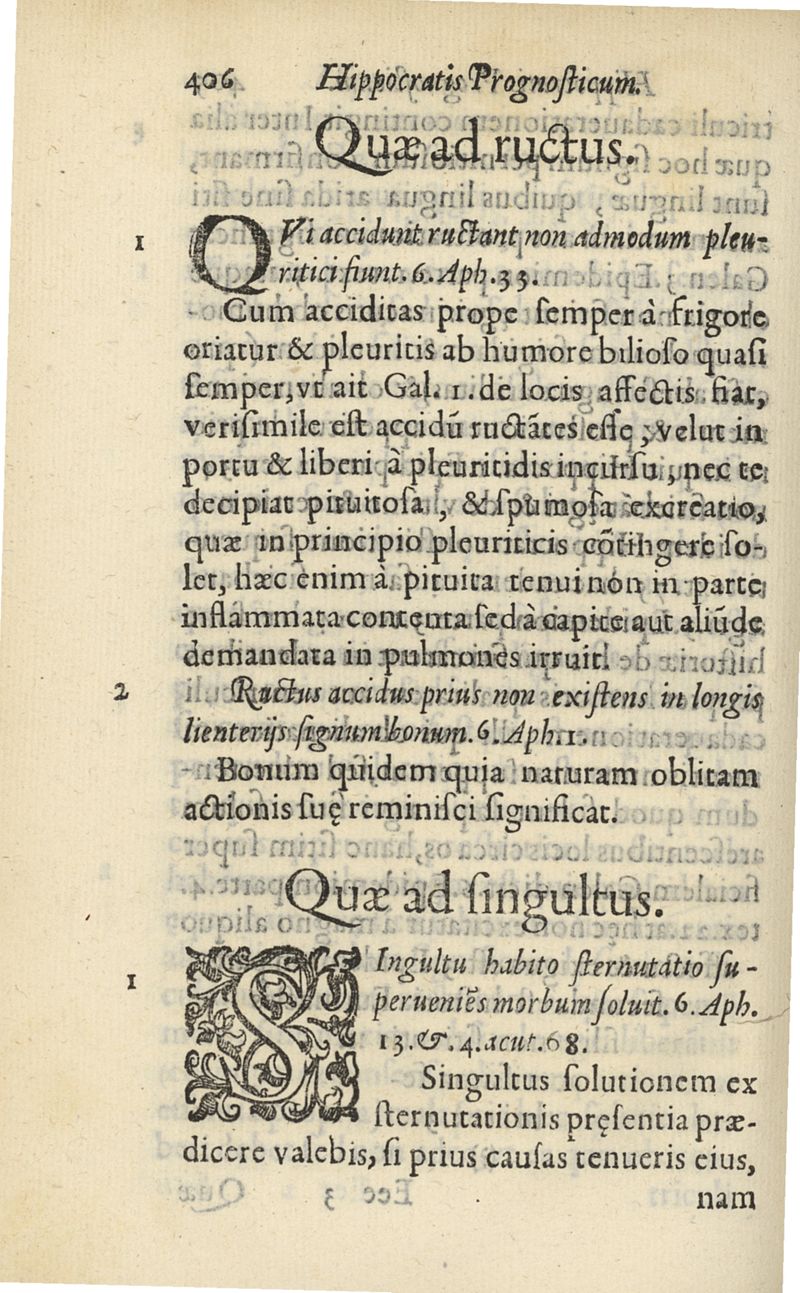 406 Hippocratis Prognosticum.
Quæ ad ructus.
1 QVi accidunt ructant non admodum pleu-
ritici fiunt. 6. Aph. 33.
Cum acciditas prope semper à frigore
oriatur & pleuritis ab humore bilioso quasi
semper, vt ait Gal. 1. de locis affectis fiat,
verisimile est accidũ ructãtes esse, velut in
portu & liberi à pleuritidis incursu, nec te
decipiat pituitosa, & spumosa excreatio,
quæ in principio pleuriticis cõtingere so-
let, hæc enim à pituita tenui non in parte
inflammata contenta sed à capite aut aliũde
demandata in pulmones irruit.
2 Ructus accidus prius non existens in longis
lienterijs signum bonum. 6. Aph. 1.
Bonum quidem quia naturam oblitam
actionis suę reminisci significat.
Quæ ad singultus.
1 SIngultu habito sternutatio su-
perueniẽs morbum soluit. 6. Aph.
13. &. 4. acut. 68.
Singultus solutionem ex
sternutationis pręsentia præ-
dicere valebis, si prius causas tenueris eius,
nam